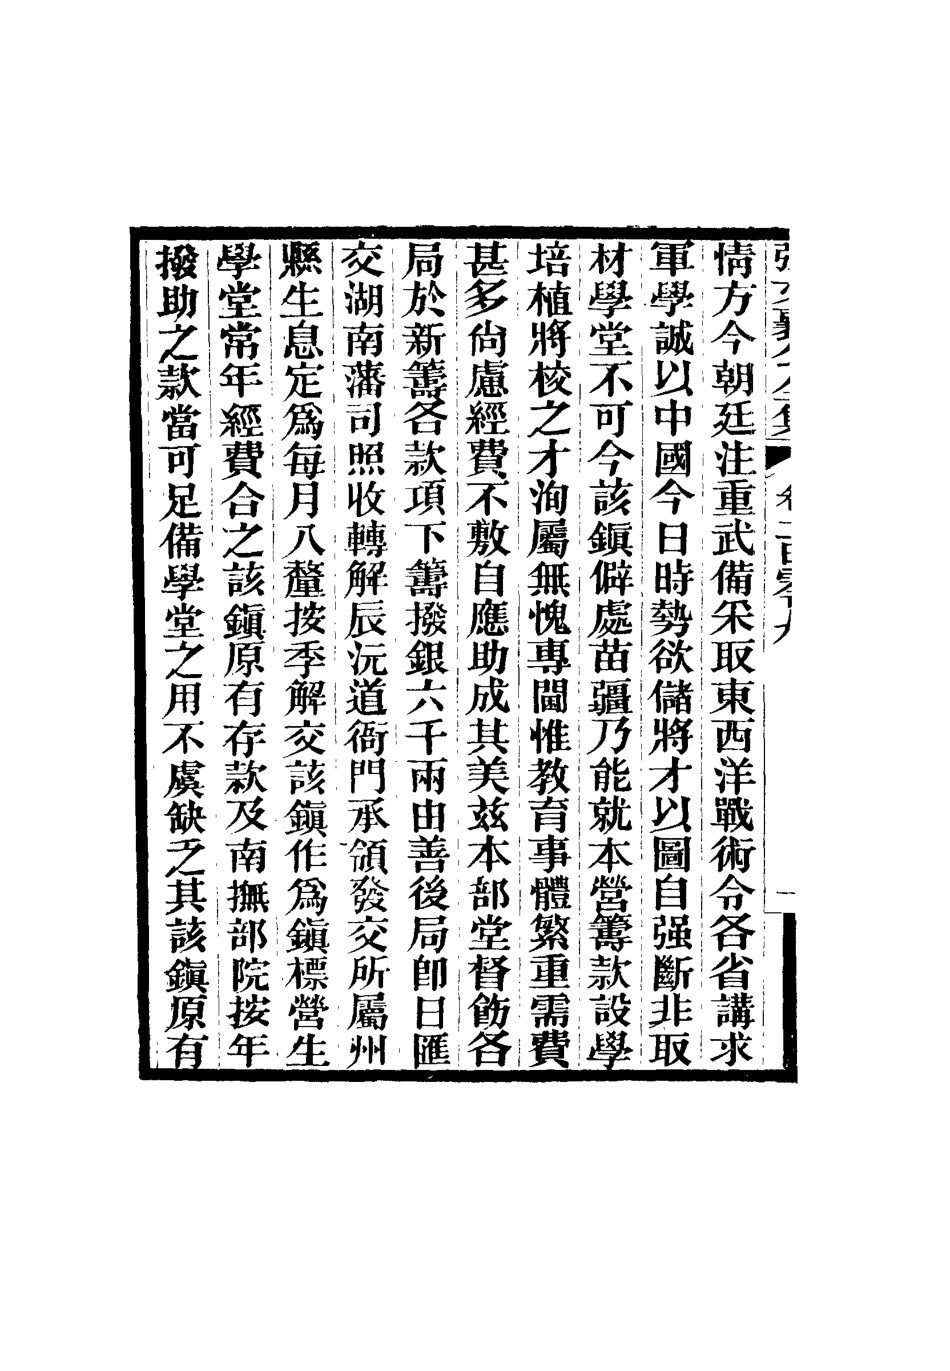 張文襄公全集 卷一百零九 一
情方今朝廷注重武備采取東西洋戰術令各省講求
軍學誠以中國今日時勢欲儲將才以圖自强斷非取
材學堂不可今該鎭僻處苗疆乃能就本營籌款設學
培植將校之才洵屬無愧專閫惟教育事體繁重需費
甚多尙慮經費不敷自應助成其美兹本部堂督飭各
局於新籌各款項下籌撥銀六千兩由善後局卽日匯
交湖南藩司照收轉解辰沅道衙門承領發交所屬州
縣生息定爲每月八釐按季解交該鎭作爲鎭標營生
學堂常年經費合之該鎭原有存款及南撫部院按年
撥助之款當可足備學堂之用不虞缺乏其該鎭原有